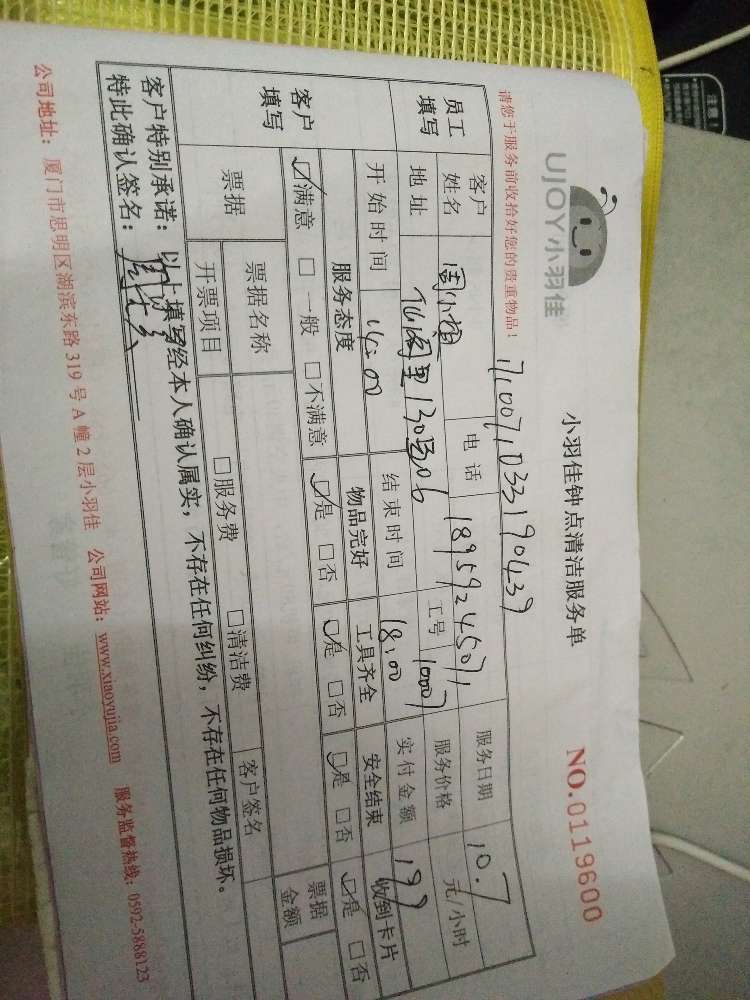 UJOY小羽佳
小羽佳钟点清洁服务单
NO.0119600
请您于服务前收拾好您的贵重物品！
17100710332190439
员工填写
客户姓名 周小姐 电话 18959245071 服务日期 10.7
地址 仙阁里130号06 工号 10007 服务价格 元/小时
开始时间 14:00 结束时间 18:00 实付金额 199
客户填写
服务态度 物品完好 工具齐全 安全结束 收到卡片
☑满意 □一般 □不满意 ☑是 □否 ☑是 □否 ☑是 □否 ☑是 □否
票据 票据名称 客户签名 票据金额
开票项目 □服务费 □清洁费
客户特别承诺：以上填写经本人确认属实，不存在任何纠纷，不存在任何物品损坏。
特此确认签名：
公司地址：厦门市思明区湖滨东路319号A幢2层小羽佳 公司网站：www.xiaoyujia.com 服务监督热线：0592-5888123